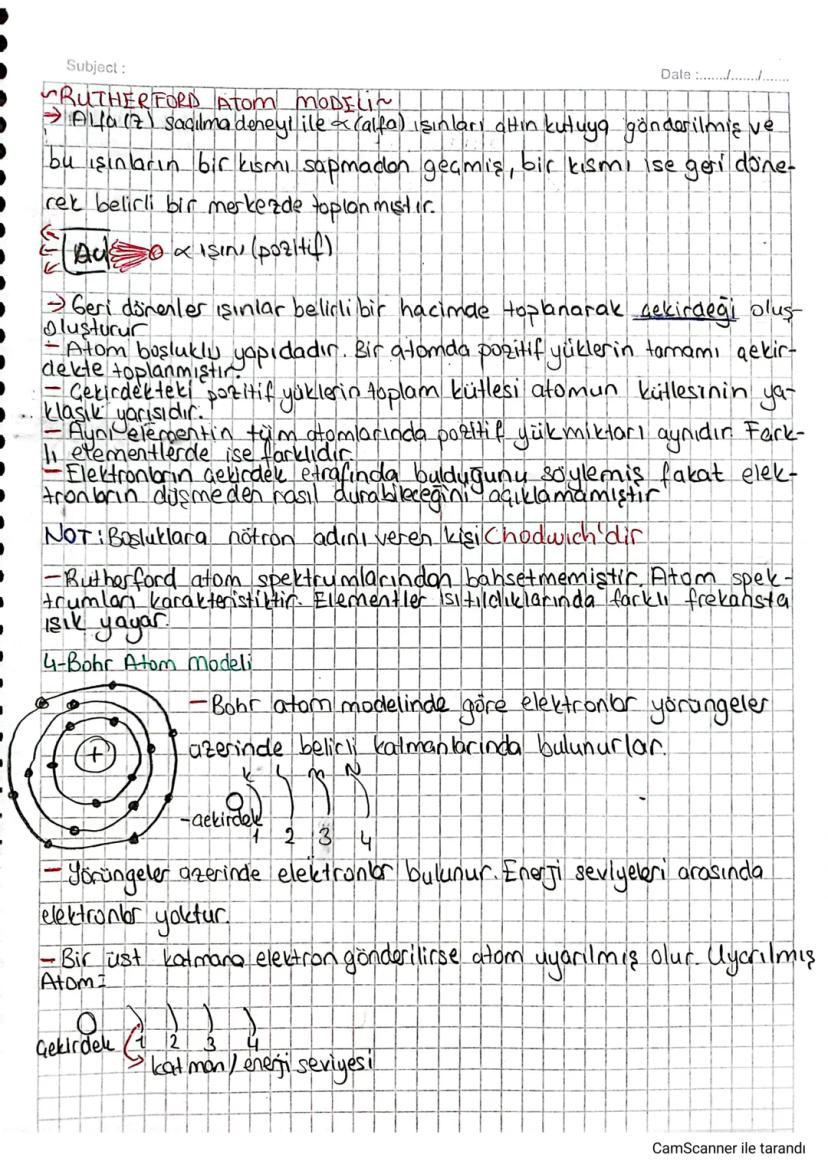 Subject :
Date :......./......./.......
~RUTHERFORD ATOM MODELİ~
→ Alfa (2) saçılma deneyi ile α (alfa) ışınları altın kutuya gönderilmiş ve
bu ışınların bir kısmı sapmadan geçmiş, bir kısmı ise geri döne-
rek belirli bir merkezde toplanmıştır.
Au α ışını (pozitif)
→ Geri dönenler ışınlar belirli bir hacimde toplanarak çekirdeği oluş-
oluşturur
- Atom boşluklu yapıdadır. Bir atomda pozitif yüklerin tamamı çekir-
dekte toplanmıştır.
- Çekirdekteki pozitif yüklerin toplam kütlesi atomun kütlesinin ya-
klaşık yarısıdır.
- Aynı elementin tüm atomlarında pozitif yük miktarı aynıdır. Fark-
lı elementlerde ise farklıdır.
- Elektronların çekirdek etrafında bulduğunu söylemiş fakat elek-
tronların düşmeden nasıl durabileceğini açıklamamıştır
NOT: Boşluklara nötron adını veren kişi Chodwich'dir
- Rutherford atom spektrumlarından bahsetmemiştir. Atom spek-
trumları karakteristiktir. Elementler ısıtıldıklarında farklı frekansta
ışık yayar.
4-Bohr Atom Modeli
- Bohr atom modelinde göre elektronlar yörüngeler
üzerinde belirli katmanlarında bulunurlar.
+
K L M N
-çekirdek
1 2 3 4
- Yörüngeler üzerinde elektronlar bulunur. Enerji seviyeleri arasında
elektronlar yoktur.
- Bir üst katmana elektron gönderilirse atom uyarılmış olur. Uyarılmış
Atom:
Çekirdek 1 2 3 4
→ katman / enerji seviyesi
CamScanner ile tarandı